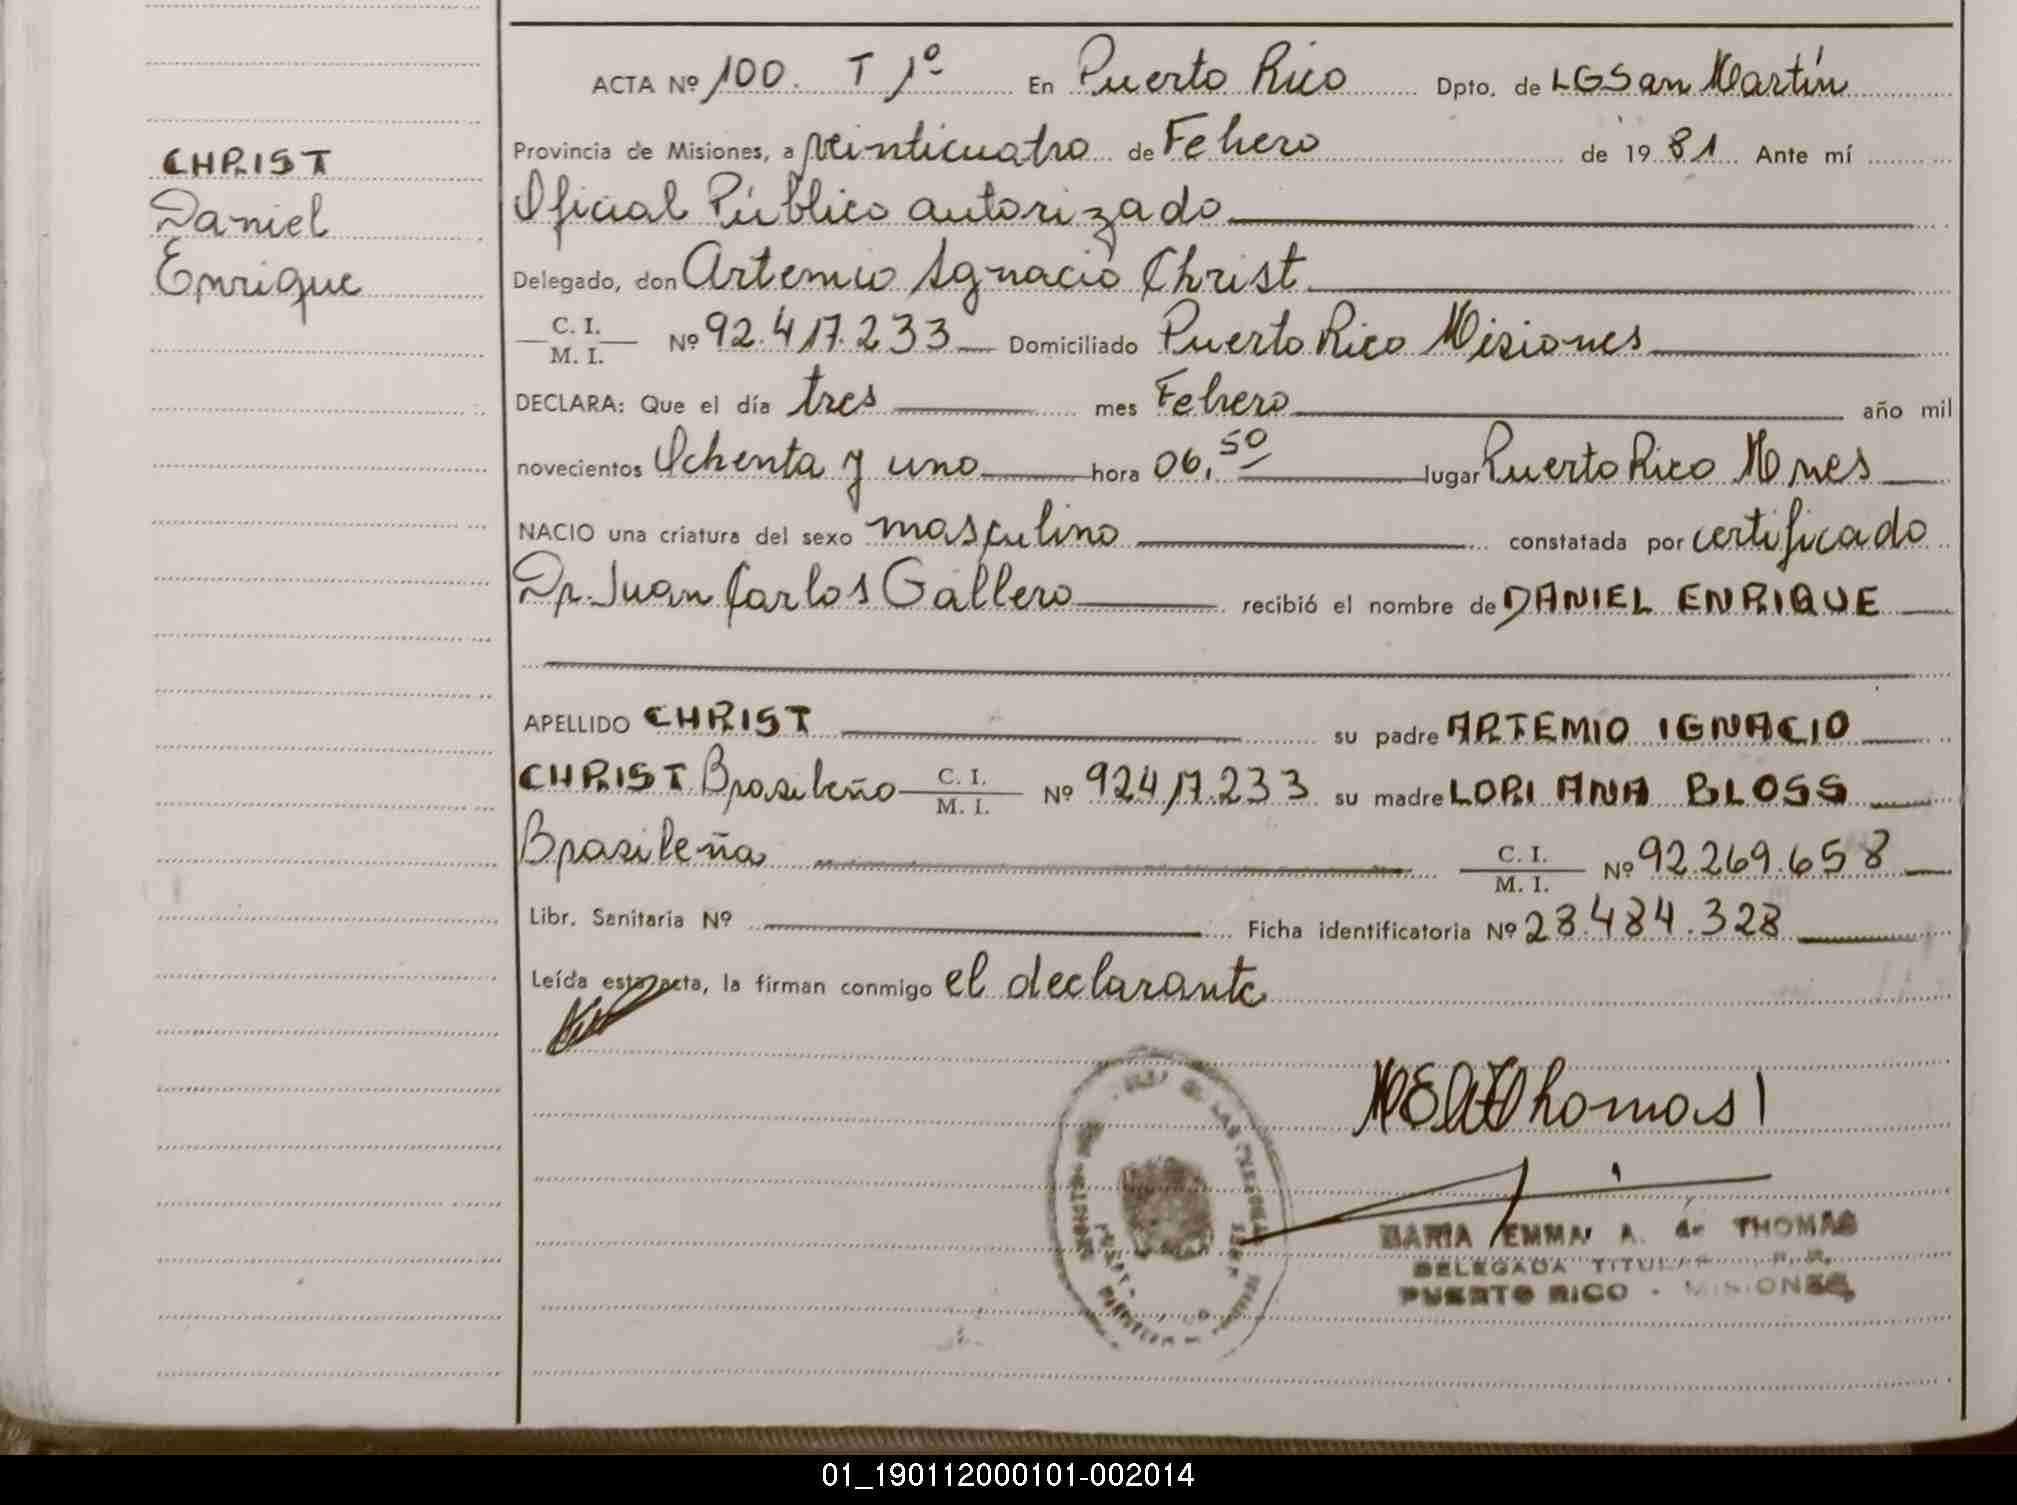 ACTA Nº 100. T 1º En Puerto Rico Dpto. de LGSan Martín
CHRIST
Daniel
Enrique
Provincia de Misiones, a veinticuatro de Febrero de 1981 Ante mí
Oficial Público autorizado
Delegado, don Artemio Ignacio Christ
C. I. / M. I. Nº 92.417.233 Domiciliado Puerto Rico Misiones
DECLARA: Que el día tres mes Febrero año mil
novecientos Ochenta y uno hora 06,50 lugar Puerto Rico Mnes
NACIO una criatura del sexo masculino constatada por certificado
Dr. Juan Carlos Gallero recibió el nombre de DANIEL ENRIQUE
APELLIDO CHRIST su padre ARTEMIO IGNACIO
CHRIST Brasileño C. I. / M. I. Nº 92417.233 su madre LORI ANA BLOSS
Brasileña C. I. / M. I. Nº 92.269.658
Libr. Sanitaria Nº Ficha identificatoria Nº 28.484.328
Leída esta acta, la firman conmigo el declarante
Thomas
MARIA EMMA A. de THOMAS
DELEGADA TITULAR
PUERTO RICO - MISIONES
01_190112000101-002014